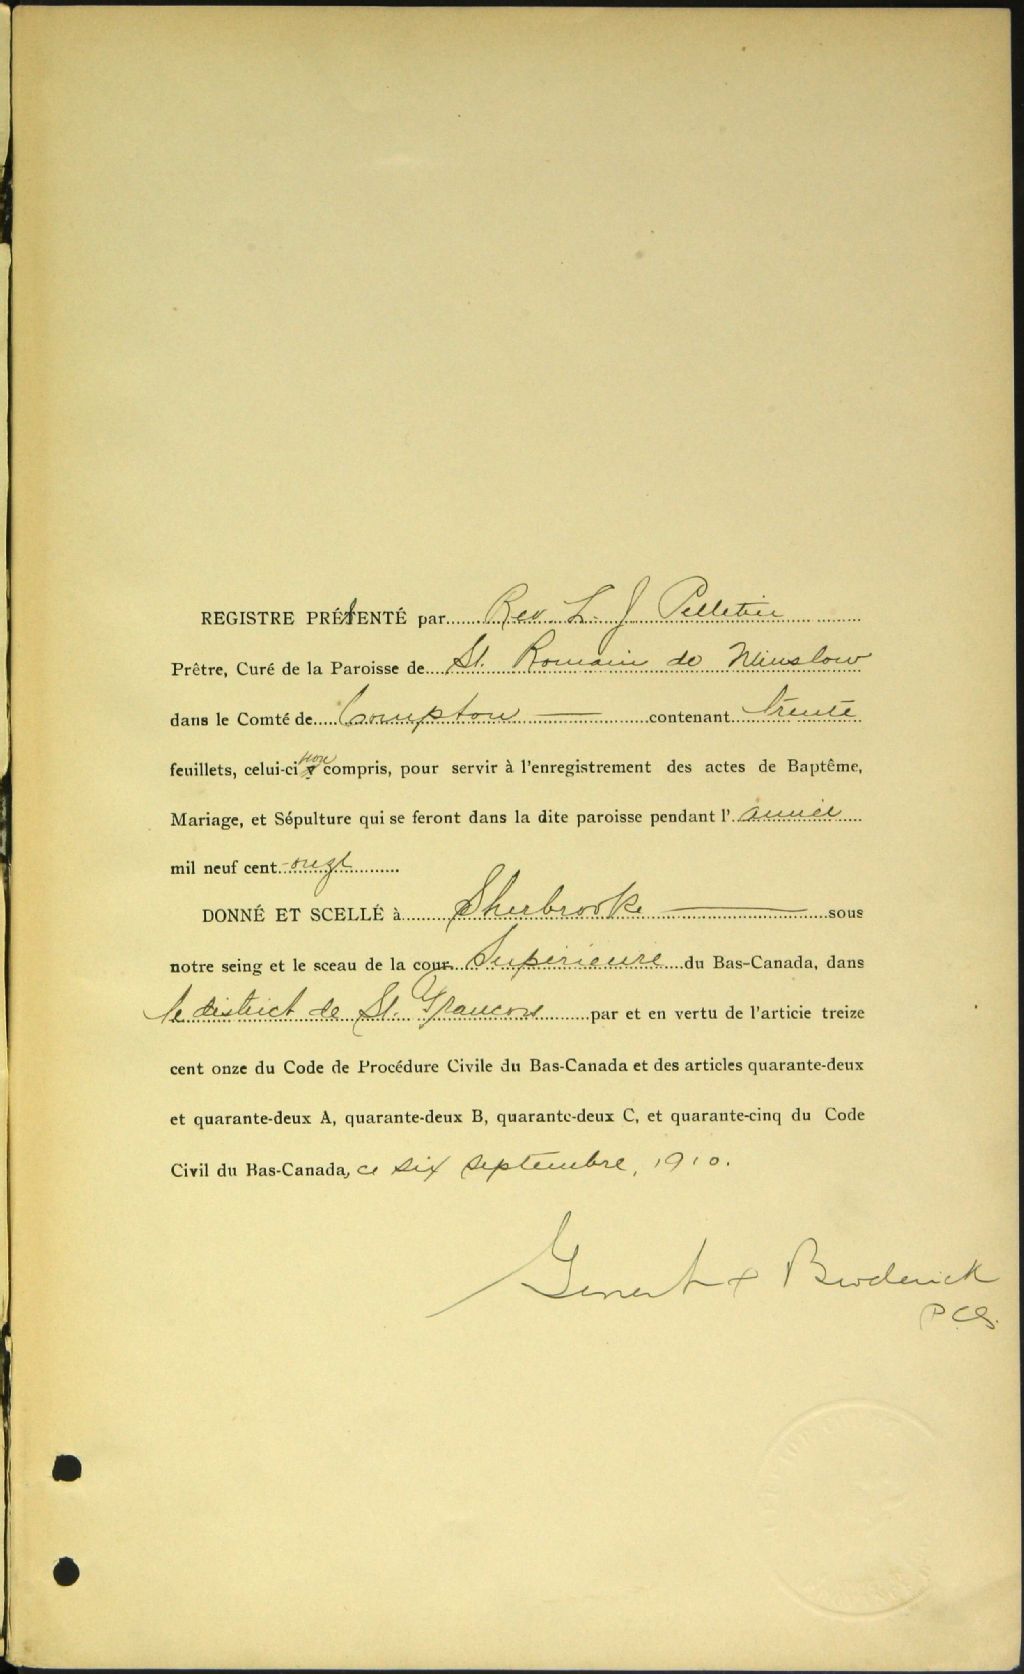 REGISTRE PRÉSENTÉ par Rev. L. J Pelletier
Prêtre, Curé de la Paroisse de St. Romain de Winslow
dans le Comté de Compton — contenant trente
feuillets, celui-ci non compris, pour servir à l'enregistrement des actes de Baptême,
Mariage, et Sépulture qui se feront dans la dite paroisse pendant l' année
mil neuf cent onze
DONNÉ ET SCELLÉ à Sherbrooke — sous
notre seing et le sceau de la cour Supérieure du Bas-Canada, dans
le district de St. François par et en vertu de l'articie treize
cent onze du Code de Procédure Civile du Bas-Canada et des articles quarante-deux
et quarante-deux A, quarante-deux B, quarante-deux C, et quarante-cinq du Code
Civil du Bas-Canada, ce six septembre, 1910.
& Broderick
P.C.S.